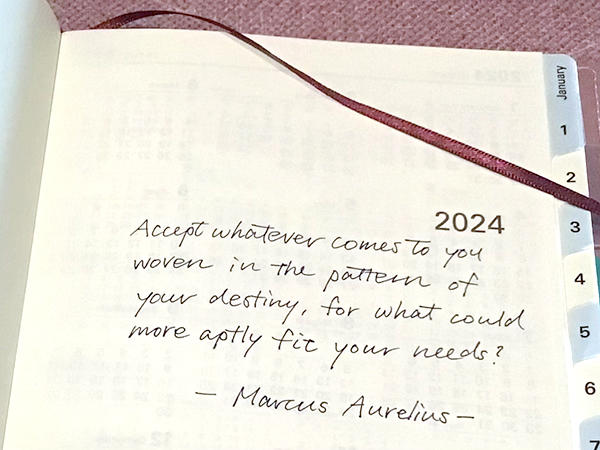 January
1
2
2024
3
Accept whatever comes to you
woven in the pattern of
4
your destiny, for what could
5
more aptly fit your needs?
6
— Marcus Aurelius —
7